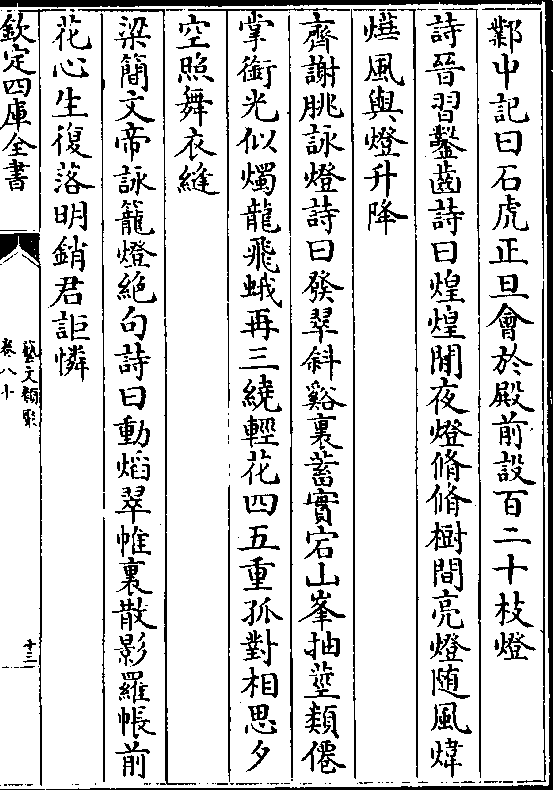 鄴中記曰石虎正旦會於殿前設百二十枝燈
詩晉習鑿齒詩曰煌煌閒夜燈脩脩樹間亮燈随風煒
燁風與燈升降
齊謝朓詠燈詩曰發翠斜谿裏蓄實宕山峯抽莖類僊
掌銜光似燭龍飛蛾再三繞輕花四五重孤對相思夕
空照舞衣縫
梁簡文帝詠籠燈絶句詩曰動熖翠帷裏散影羅帳前
花心生復落明銷君詎憐
欽定四庫全書
藝文類聚
卷八十
十三